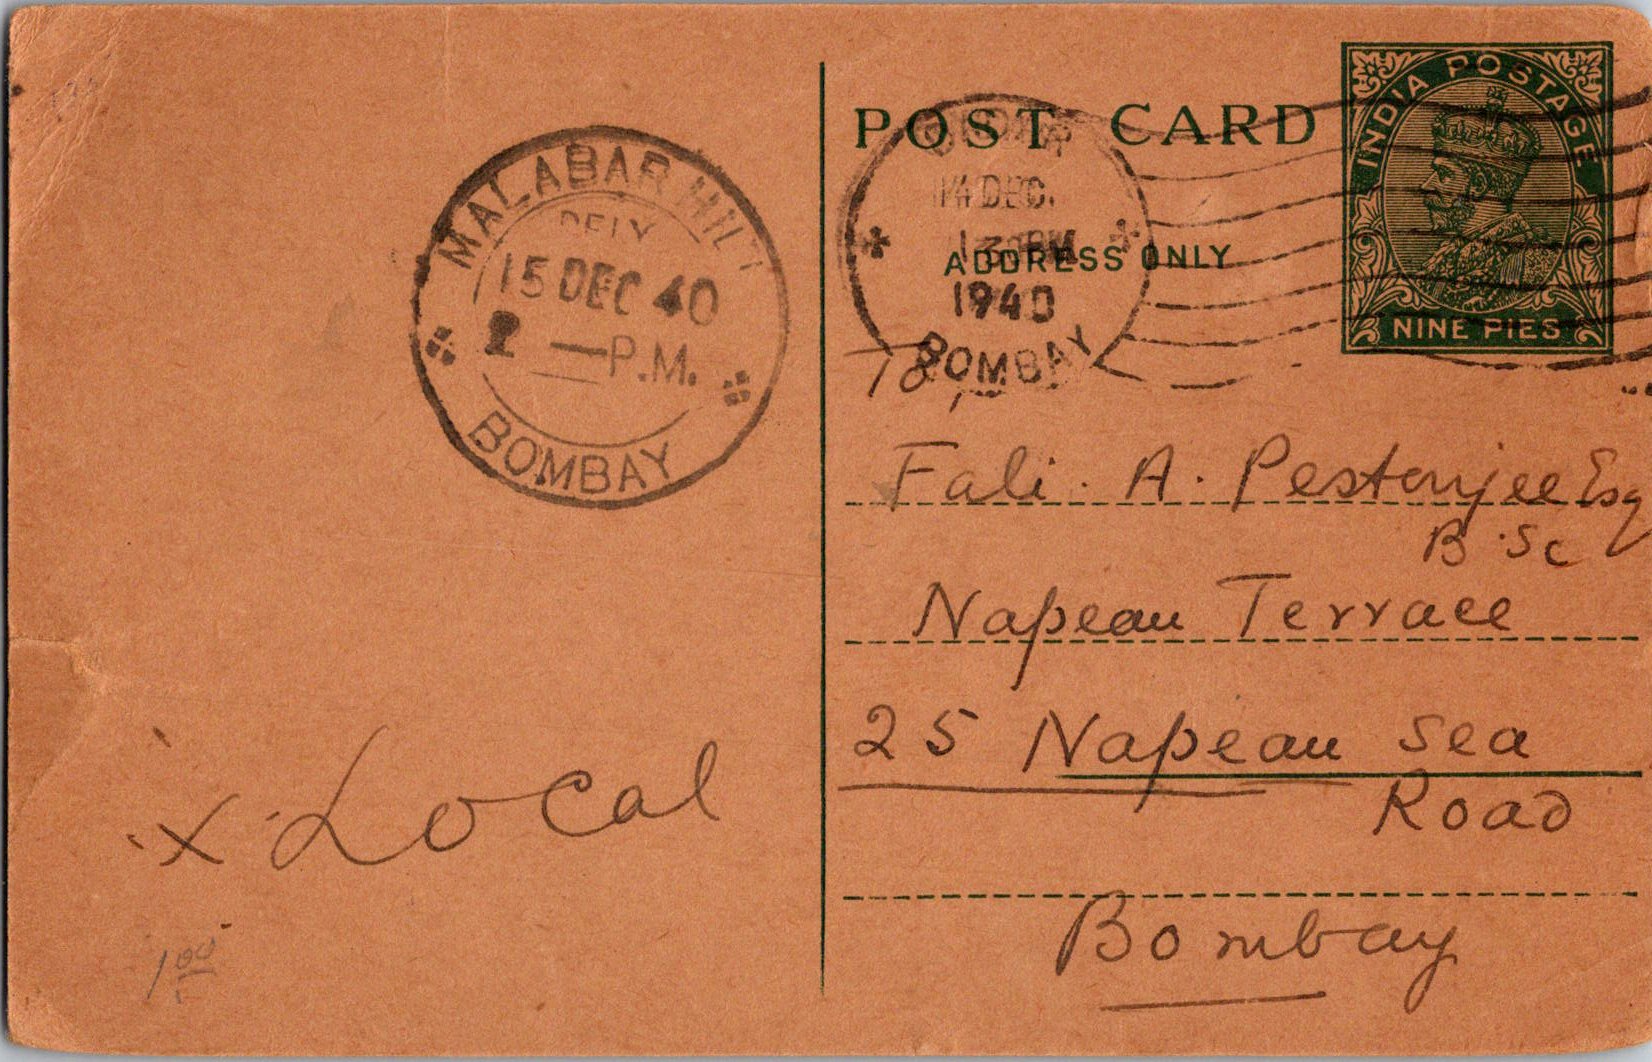 MALABAR HILL
DELY
15 DEC 40
2 — P.M.
BOMBAY
POST CARD
INDIA POSTAGE
NINE PIES
14 DEC.
1940
BOMBAY
ADDRESS ONLY
To,
Fali. A. Pestonjee Esq
B.Sc
Napean Terrace
25 Napean Sea
Road
Bombay
x Local
1.00